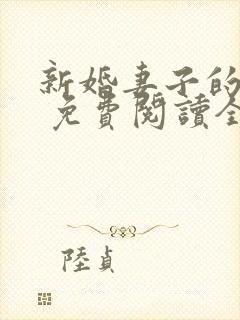 新婚妻子的
免費閱讀全
陸貞